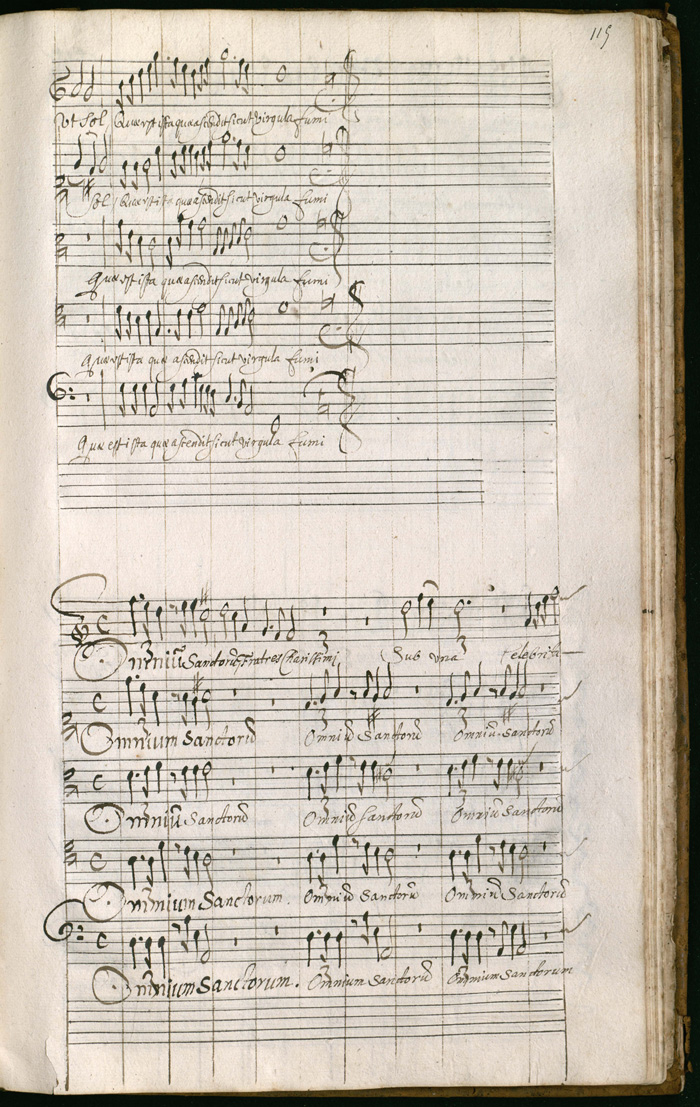 115
Vt Sol Quæ est ista quæ ascendit sicut virgula fumi
Sol Quæ est ista quæ ascendit sicut virgula fumi
Quæ est ista quæ ascendit sicut virgula fumi
Quæ est ista quæ ascendit sicut virgula fumi
Quæ est ista quæ ascendit sicut virgula fumi
Omniũ Sanctorũ Fratres Charissimi Sub vna Celebrita
Omnium Sanctorũ Omniũ Sanctorũ Omniũ Sanctorũ
Omniũ Sanctorũ Omniũ Sanctorũ Omniũ Sanctorũ
Omnium Sanctorum. Omniũ Sanctorũ Omniũ Sanctorũ
Omnium Sanctorum. Omnium Sanctorũ Omnium Sanctorum